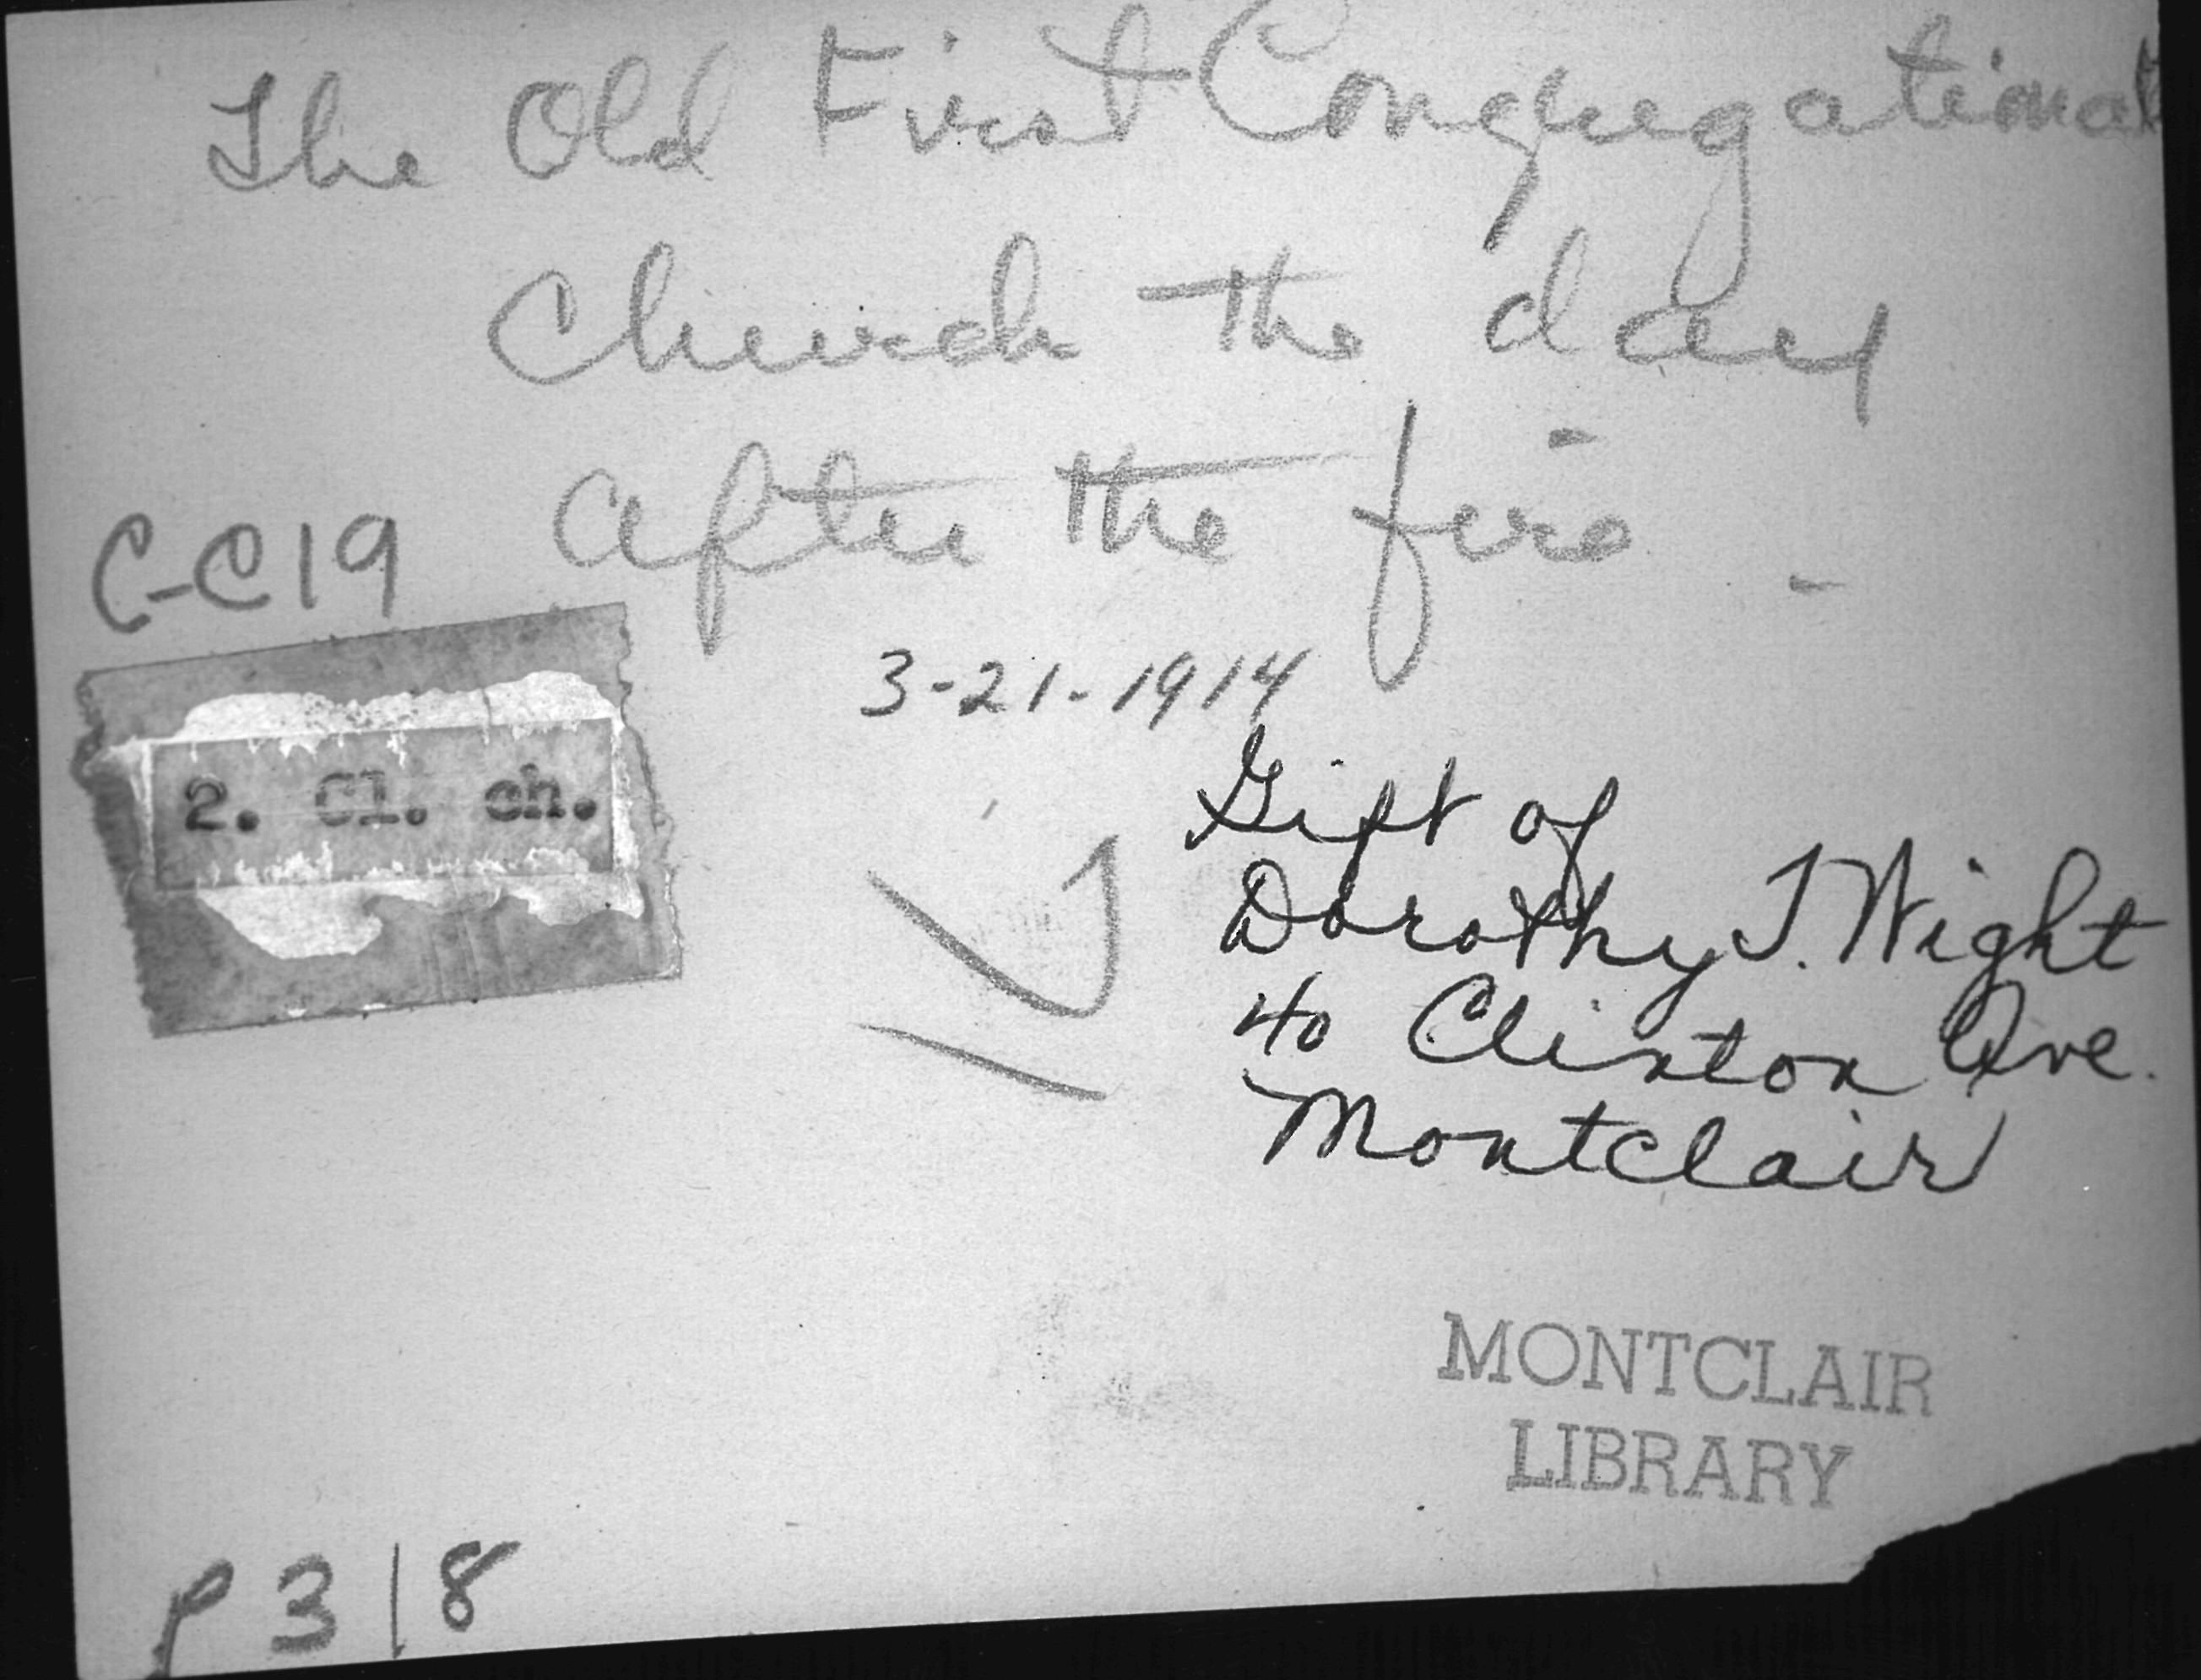 The Old First Congregational
Church the day
after the fire -
C-C19
3-21-1914
2. Cl. ch.
Gift of
Dorothy T. Wight
40 Clinton Ave.
Montclair
MONTCLAIR
LIBRARY
P318